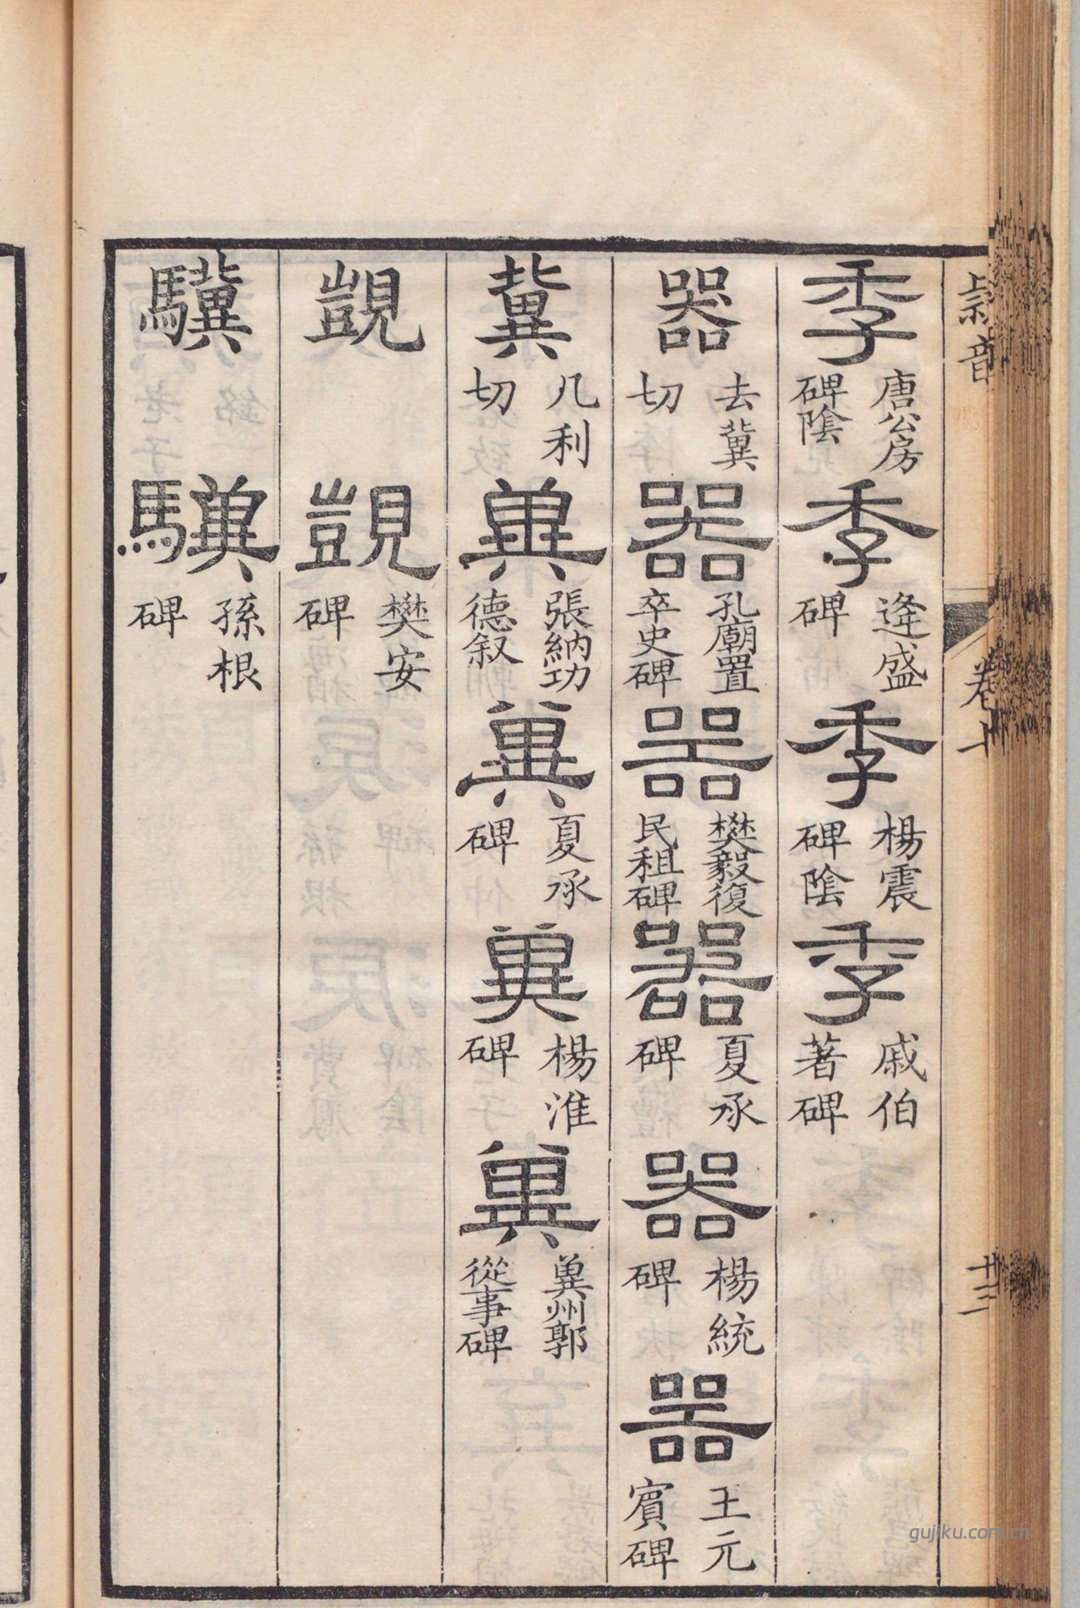 季 唐公房碑陰 季 逄盛碑 季 楊震碑陰 季 戚伯著碑
器 去冀切 器 孔廟置卒史碑 器 樊毅復民租碑 器 夏承碑 器 楊統碑 器 王元賓碑
冀 几利切 冀 張納功德叙 冀 夏承碑 冀 楊淮碑 冀 冀州郭從事碑
覬 覬 樊安碑
驥 驥 孫根碑
卷十
廿三
gujiku.com.cn